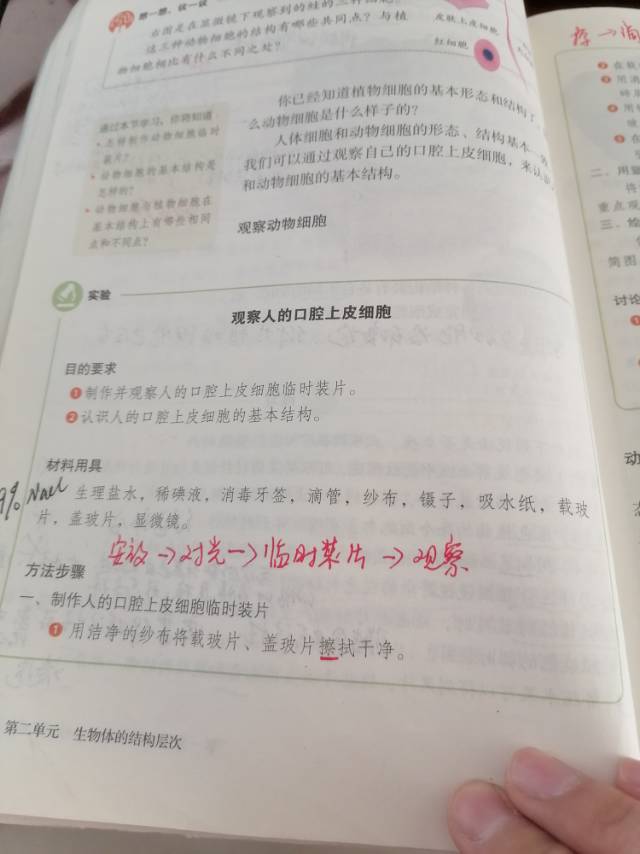 想一想，议一议
右图是在显微镜下观察到的蛙的三种细胞。
这三种动物细胞的结构有哪些共同点？与植
物细胞相比有什么不同之处？
皮肤上皮细胞
红细胞
通过本节学习，你将知道
怎样制作动物细胞临时
装片？
动物细胞的基本结构是
怎样的？
动物细胞与植物细胞在
基本结构上有哪些相同
点和不同点？
你已经知道植物细胞的基本形态和结构了，
么动物细胞是什么样子的？
人体细胞和动物细胞的形态、结构基本一致
我们可以通过观察自己的口腔上皮细胞，来认识
和动物细胞的基本结构。
观察动物细胞
实验
观察人的口腔上皮细胞
目的要求
❶制作并观察人的口腔上皮细胞临时装片。
❷认识人的口腔上皮细胞的基本结构。
材料用具
9% Nacl
生理盐水，稀碘液，消毒牙签，滴管，纱布，镊子，吸水纸，载玻
片，盖玻片，显微镜。
安放→对光→临时装片→观察
方法步骤
一、制作人的口腔上皮细胞临时装片
❶ 用洁净的纱布将载玻片、盖玻片擦拭干净。
第二单元 生物体的结构层次
❷ 在载
❸ 用消
❹ 用
❺ 在
二、用显
将
重点观
三、绘
简图
讨论
❶
动